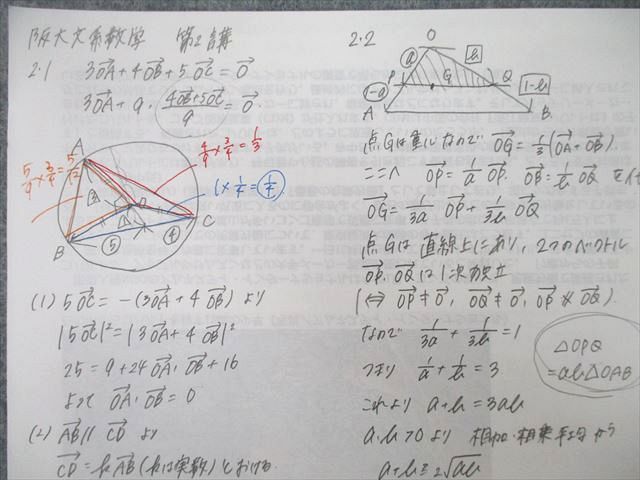 阪大文系数学 第2講
2·1 3OA→+4OB→+5OC→=0→
3OA→+9·(4OB→+5OC→)/9=0→
A
5/9×3/4=5/12
4/9×3/4=1/3
1×1/4=1/4
③
O
⑤
④
B
C
(1) 5OC→=-(3OA→+4OB→) より
|5OC→|²=|3OA→+4OB→|²
25=9+24OA→·OB→+16
よって OA→·OB→=0
(2) AB→//CD→ より
CD→=kAB→(kは実数)とおける
2·2
O
a
b
P
G
Q
1-a
1-b
A
B
点Gは重心なので OG→=1/3(OA→+OB→).
ここで OP→=1/a OP→, OB→=1/b OQ→
OG→=1/3a OP→+1/3b OQ→
点Gは直線上にあり、2つのベクトル
OP→, OQ→は1次独立
(⇔ OP→≠0→, OQ→≠0→, OP→∦OQ→).
なので 1/3a+1/3b=1
つまり 1/a+1/b=3
これより a+b=3ab
a,b>0より 相加·相乗平均から
a+b≧2√ab
△OPQ
=ab△OAB